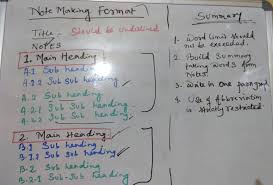 Note Making Format
Title: Should be underlined
NOTES
1. Main Heading
A.1 Sub heading
A.1.1 Sub Sub heading
A.2 Sub heading
A.2.1 Sub Sub heading
A.2.2 Sub Sub heading
2. Main Heading
B.1 Sub heading
B.1.1 Sub Sub heading
B.2 Sub heading
B.2.1 Sub-Sub heading
Summary
1. Word limit should
not be exceeded.
2. Build Summary
taking words from
Notes
3. Write in one paragraph
4. Use of Abbreviation
is strictly restricted